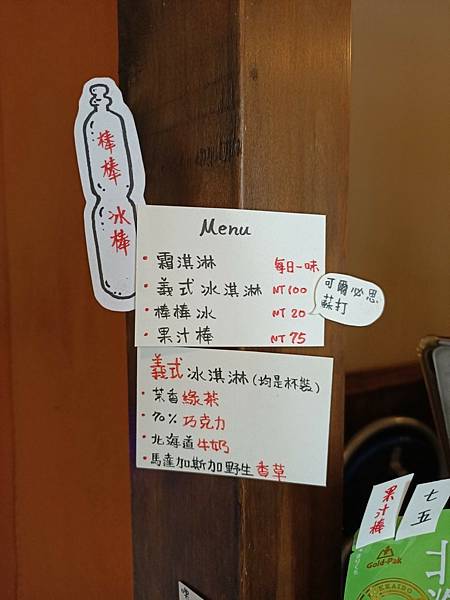 棒棒
冰棒
Menu
• 霜淇淋 每日一味
• 義式冰淇淋 NT 100
• 棒棒冰 NT 20
可爾必思
蘇打
• 果汁棒 NT 75
義式冰淇淋(均是杯裝)
• 茉香綠茶
• 70% 巧克力
• 北海道牛奶
• 馬達加斯加野生香草
果汁棒
七五
Gold-Pak
HOKKAIDO